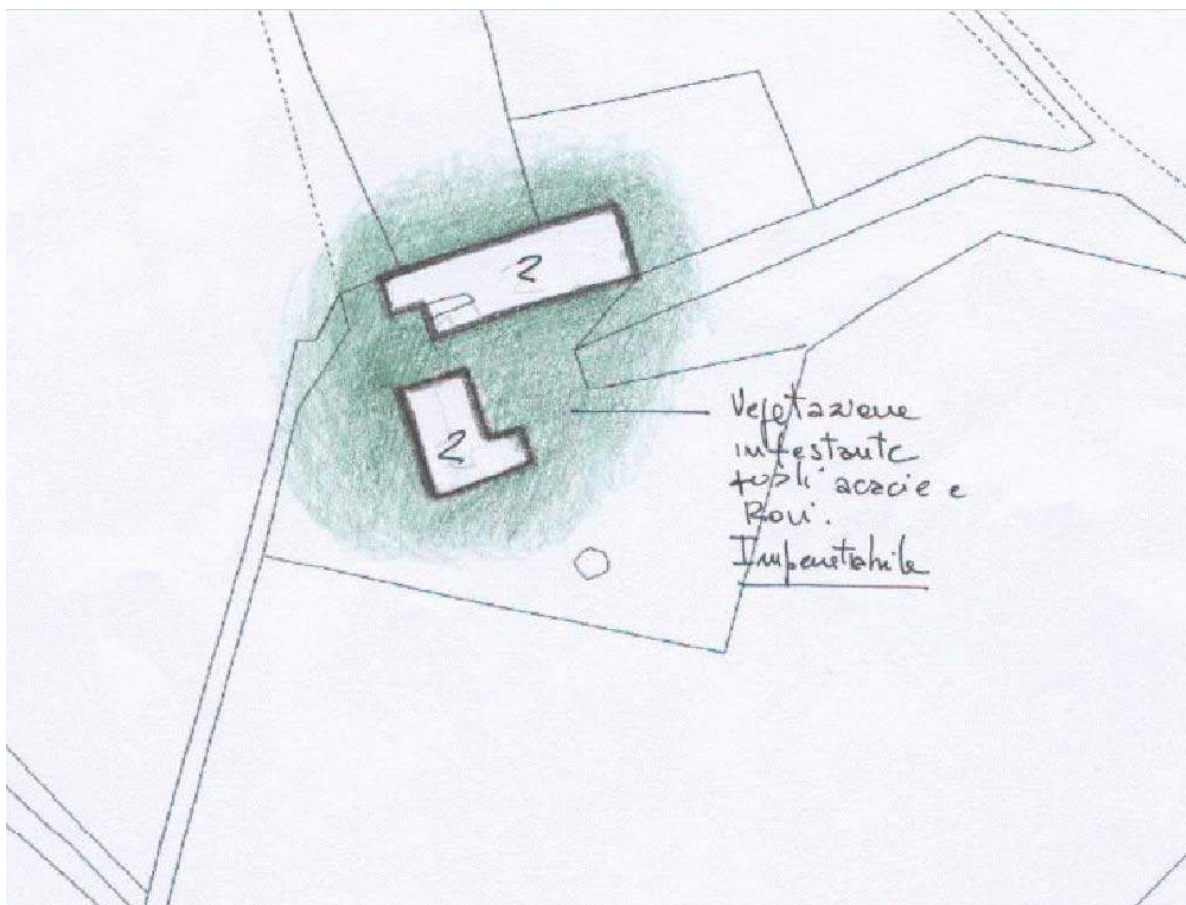 2
2
Vegetazione
infestante
acacie e
Rovi.
Impenetrabile